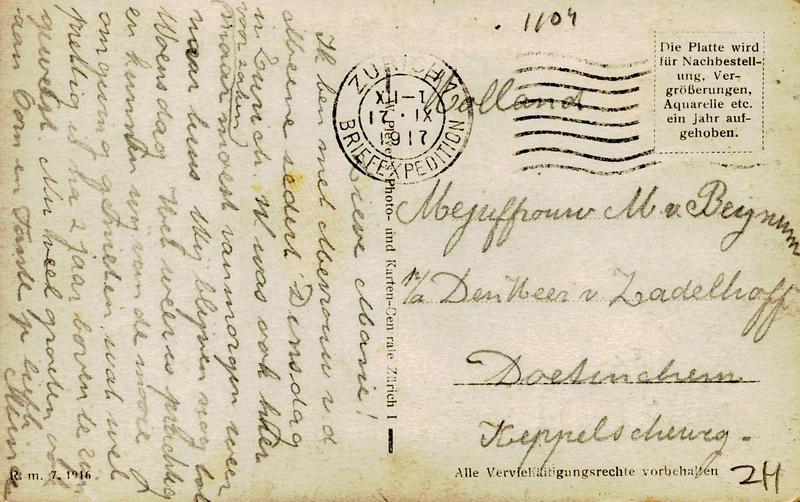 1104
Die Platte wird
für Nachbestell-
ung, Ver-
größerungen,
Aquarelle etc.
ein jahr auf-
gehoben.
ZÜRICH
XI-1
17.IX
1917
BRIEFEXPEDITION
Holland
Mejuffrouw M v. Beynum
p/a Den Heer v Zadelhoff
Doetinchem
Keppelscheweg.
Photo- und Karten-Cen rale Zürich 1
Lieve Marie!
Ik ben met Mevrouw v d
Meene sedert Dinsdag
in Zurich. W was ook hier
voor zaken
maar moest vanmorgen weer
naar huis Wij blijven nog tot
Woensdag Het weer is prachtig
en kunnen wij van de mooie
omgeving genieten, wat wel
prettig is na 2 jaar boven te zijn
geweest. Nu veel groeten ook
aan Oom en Tante je liefh
R. m. 7. 1916
Alle Vervielfältigungsrechte vorbehalten
2H